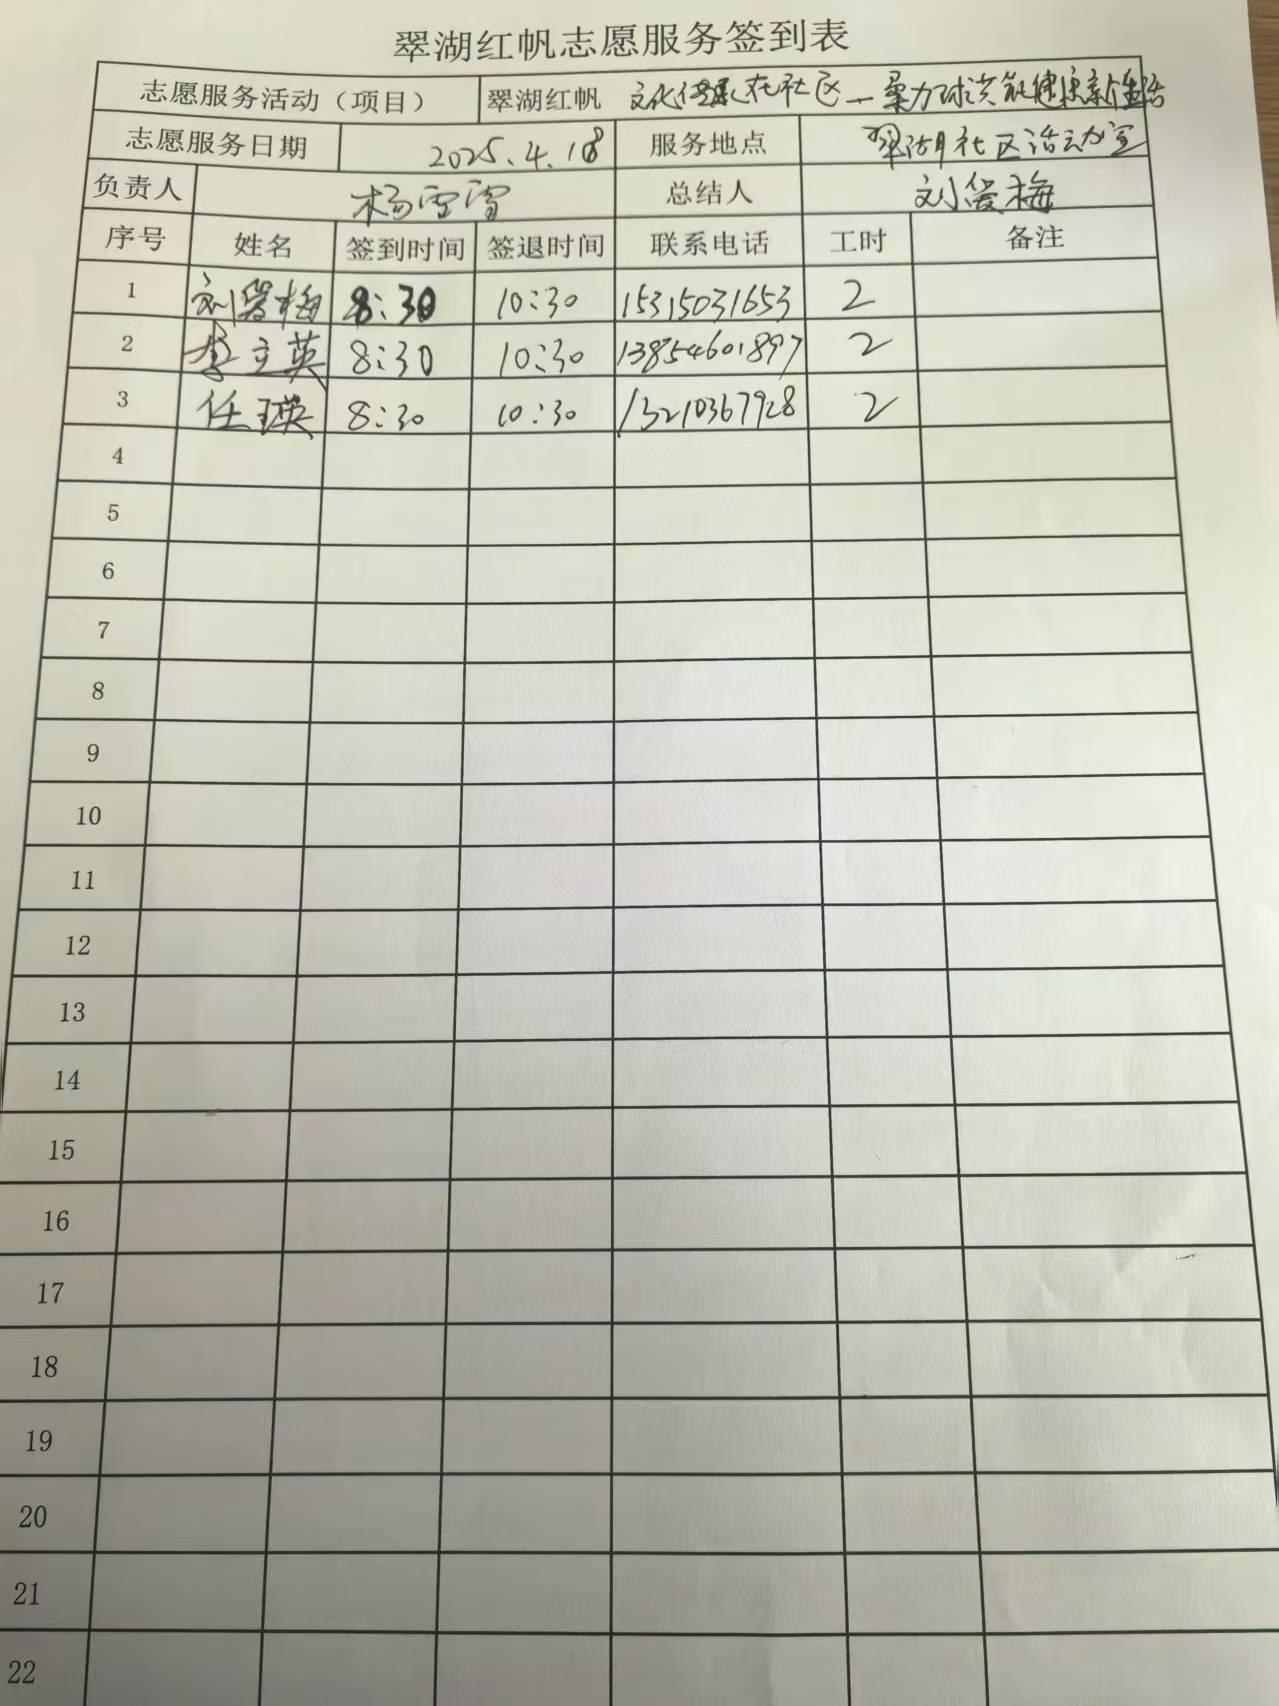 翠湖红帆志愿服务签到表
志愿服务活动（项目） 翠湖红帆 文化传承在社区—柔力球共筑健康新生活
志愿服务日期 2025.4.18 服务地点 翠湖社区活动室
负责人 杨雪雪 总结人 刘爱梅
序号 姓名 签到时间 签退时间 联系电话 工时 备注
1 刘爱梅 8:30 10:30 15315031653 2
2 李立英 8:30 10:30 13854601897 2
3 任瑛 8:30 10:30 13210367928 2
4
5
6
7
8
9
10
11
12
13
14
15
16
17
18
19
20
21
22